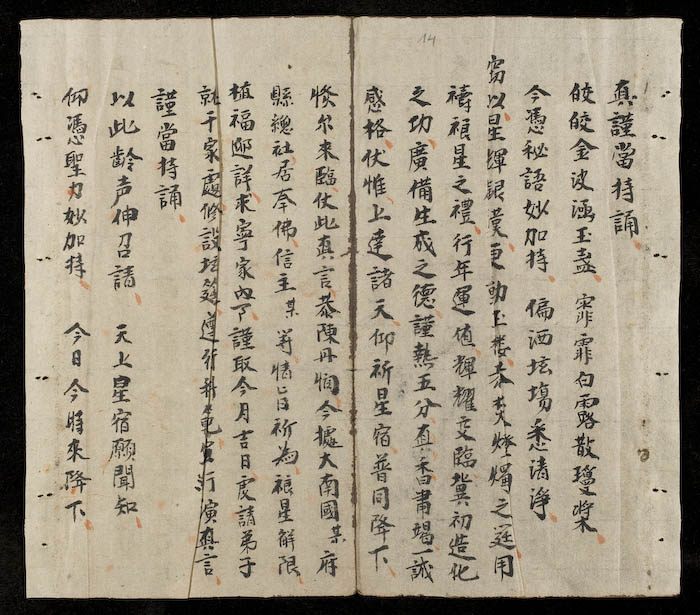 14
真謹當持誦
皎皎金波涵玉盞 霏霏白露散瓊漿
今憑秘語妙加持 偏洒坛場悉清淨
窃以星輝銀漢更動玉楼恭 燈燭之筵用
禱禳星之禮行年運值輝耀交臨冀初造化
之功廣備生成之德謹熱五分真香肅竭一誠
感格仗惟上達諸天仰祈星宿普同降下
倏尔來臨仗此真言恭陳丹悃今據大南國某府
縣總社居奉佛信主某 等情旨祈為禳星解限
植福迎詳求寧家內 謹取今月吉日虔請弟子
就于家處修設坛筵遵行 宣行演真言
謹當持誦
以此齡声伸召請 天上星宿願聞知
仰憑聖力妙加持 今日今時來降下